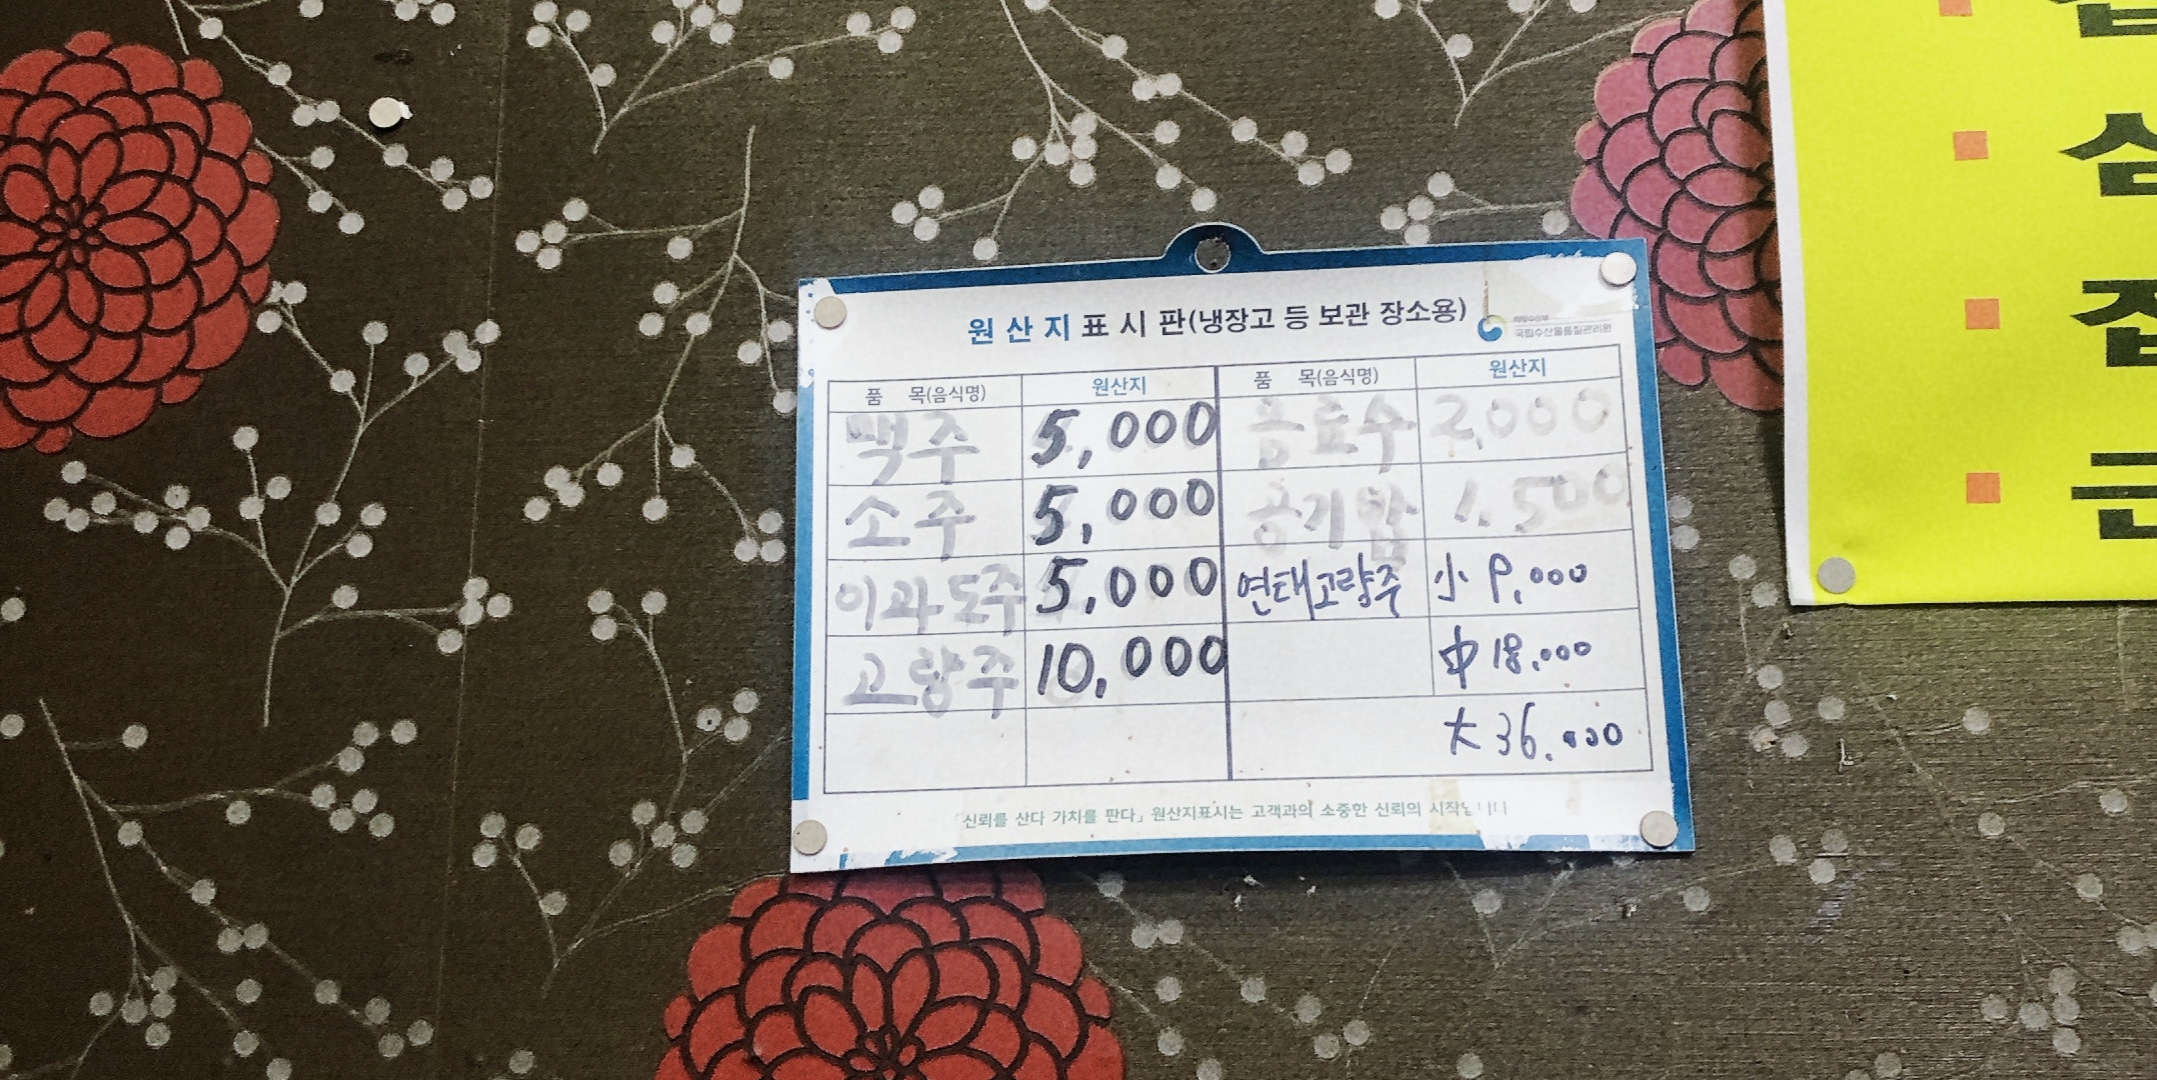 원산지표시판(냉장고 등 보관 장소용)
국립수산물품질관리원
품 목(음식명) 원산지 품 목(음식명) 원산지
맥주 5,000 음료수 2,000
소주 5,000 공기밥 1,500
이과도주 5,000 연태고량주 小 9,000
고량주 10,000 中 18,000
大 36,000
「신뢰를 산다 가치를 판다」 원산지표시는 고객과의 소중한 신뢰의